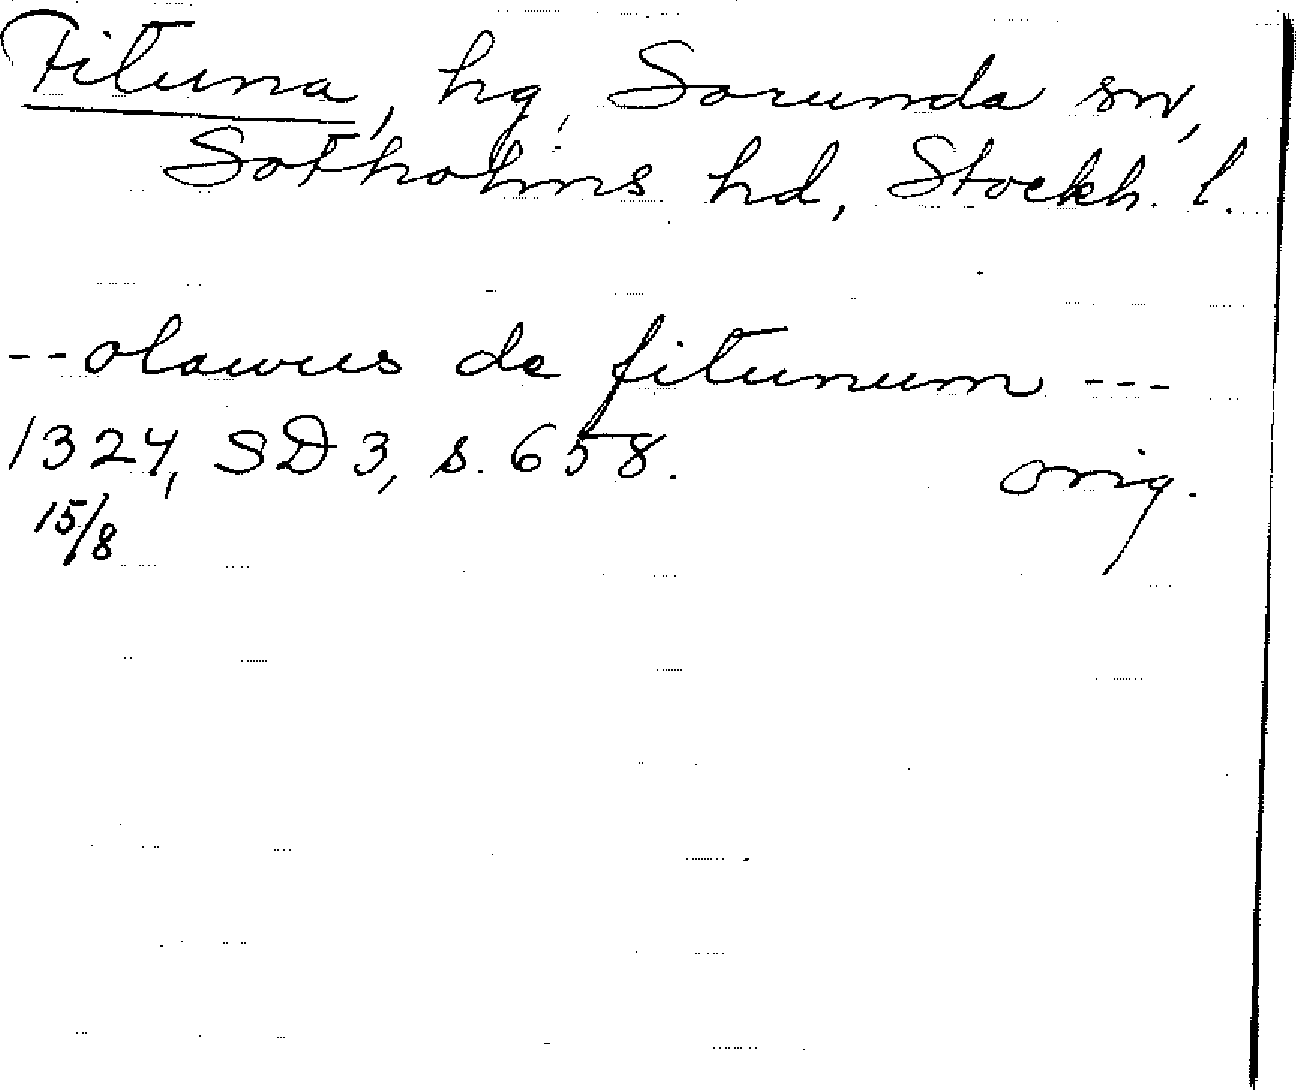 Fituna, hg, Sorunda sn,
Sotholms hd, Stockh. l.
--olawus de fitunum ---
1324, SD 3, s. 658. orig.
15/8